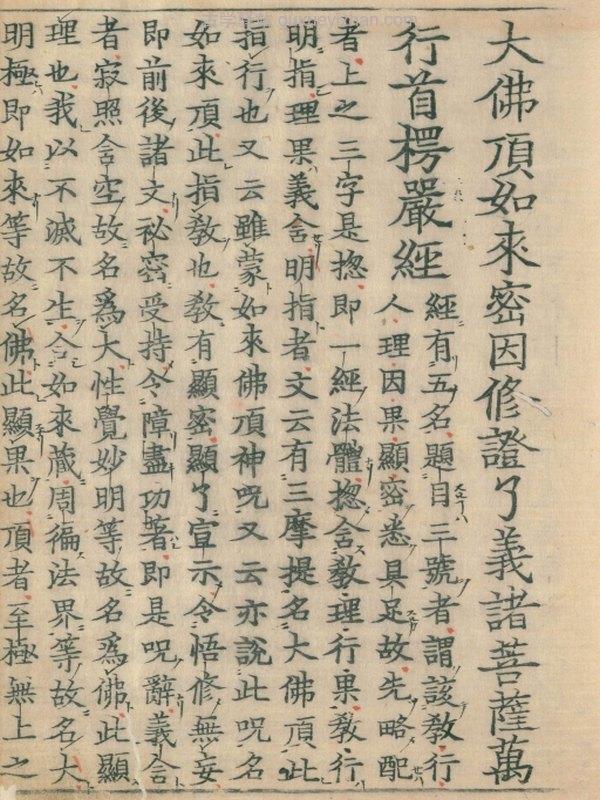 大佛頂如來密因修證了義諸菩薩萬
行首楞嚴經
經有五名題目三號者謂該教行
人理因果顯密悉具足故先略配
者上之三字是揔即一經法體揔含教理行果教行
明指理果義含明指者文云有三摩提名大佛頂此
指行也又云雖蒙如來佛頂神呪又云亦說此呪名
如來頂此指教也教有顯密顯了宣示令悟修無妄
即前後諸文祕密受持令障盡功著即是呪辭義含
者寂照含空故名為大性覺妙明等故名為佛此顯
理也我以不滅不生合如來藏周徧法界等故名大
明極即如來等故名佛此顯果也頂者至極無上之